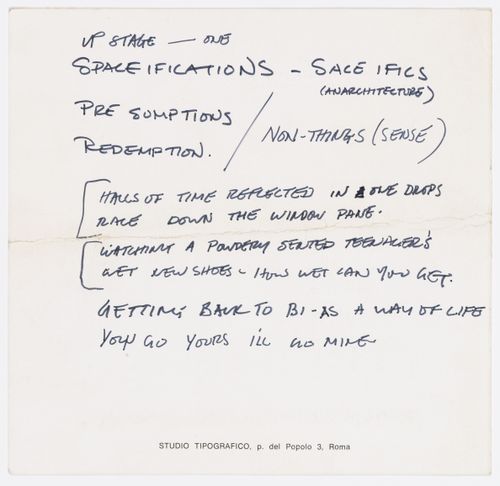 UP STAGE — ONE
SPACEIFICATIONS - SACEIFICS
(ANARCHITECTURE)
PRESUMPTIONS
NON-THINGS (SENSE)
REDEMPTION.
HALLS OF TIME REFLECTED IN ONE DROPS
RACE DOWN THE WINDOW PANE.
WATCHING A POWDERY SENTED TEENAGER'S
WET NEW SHOES - HOW WET CAN YOU GET.
GETTING BACK TO BI-AS A WAY OF LIFE
YOU GO YOURS I'LL GO MINE
STUDIO TIPOGRAFICO, p. del Popolo 3, Roma